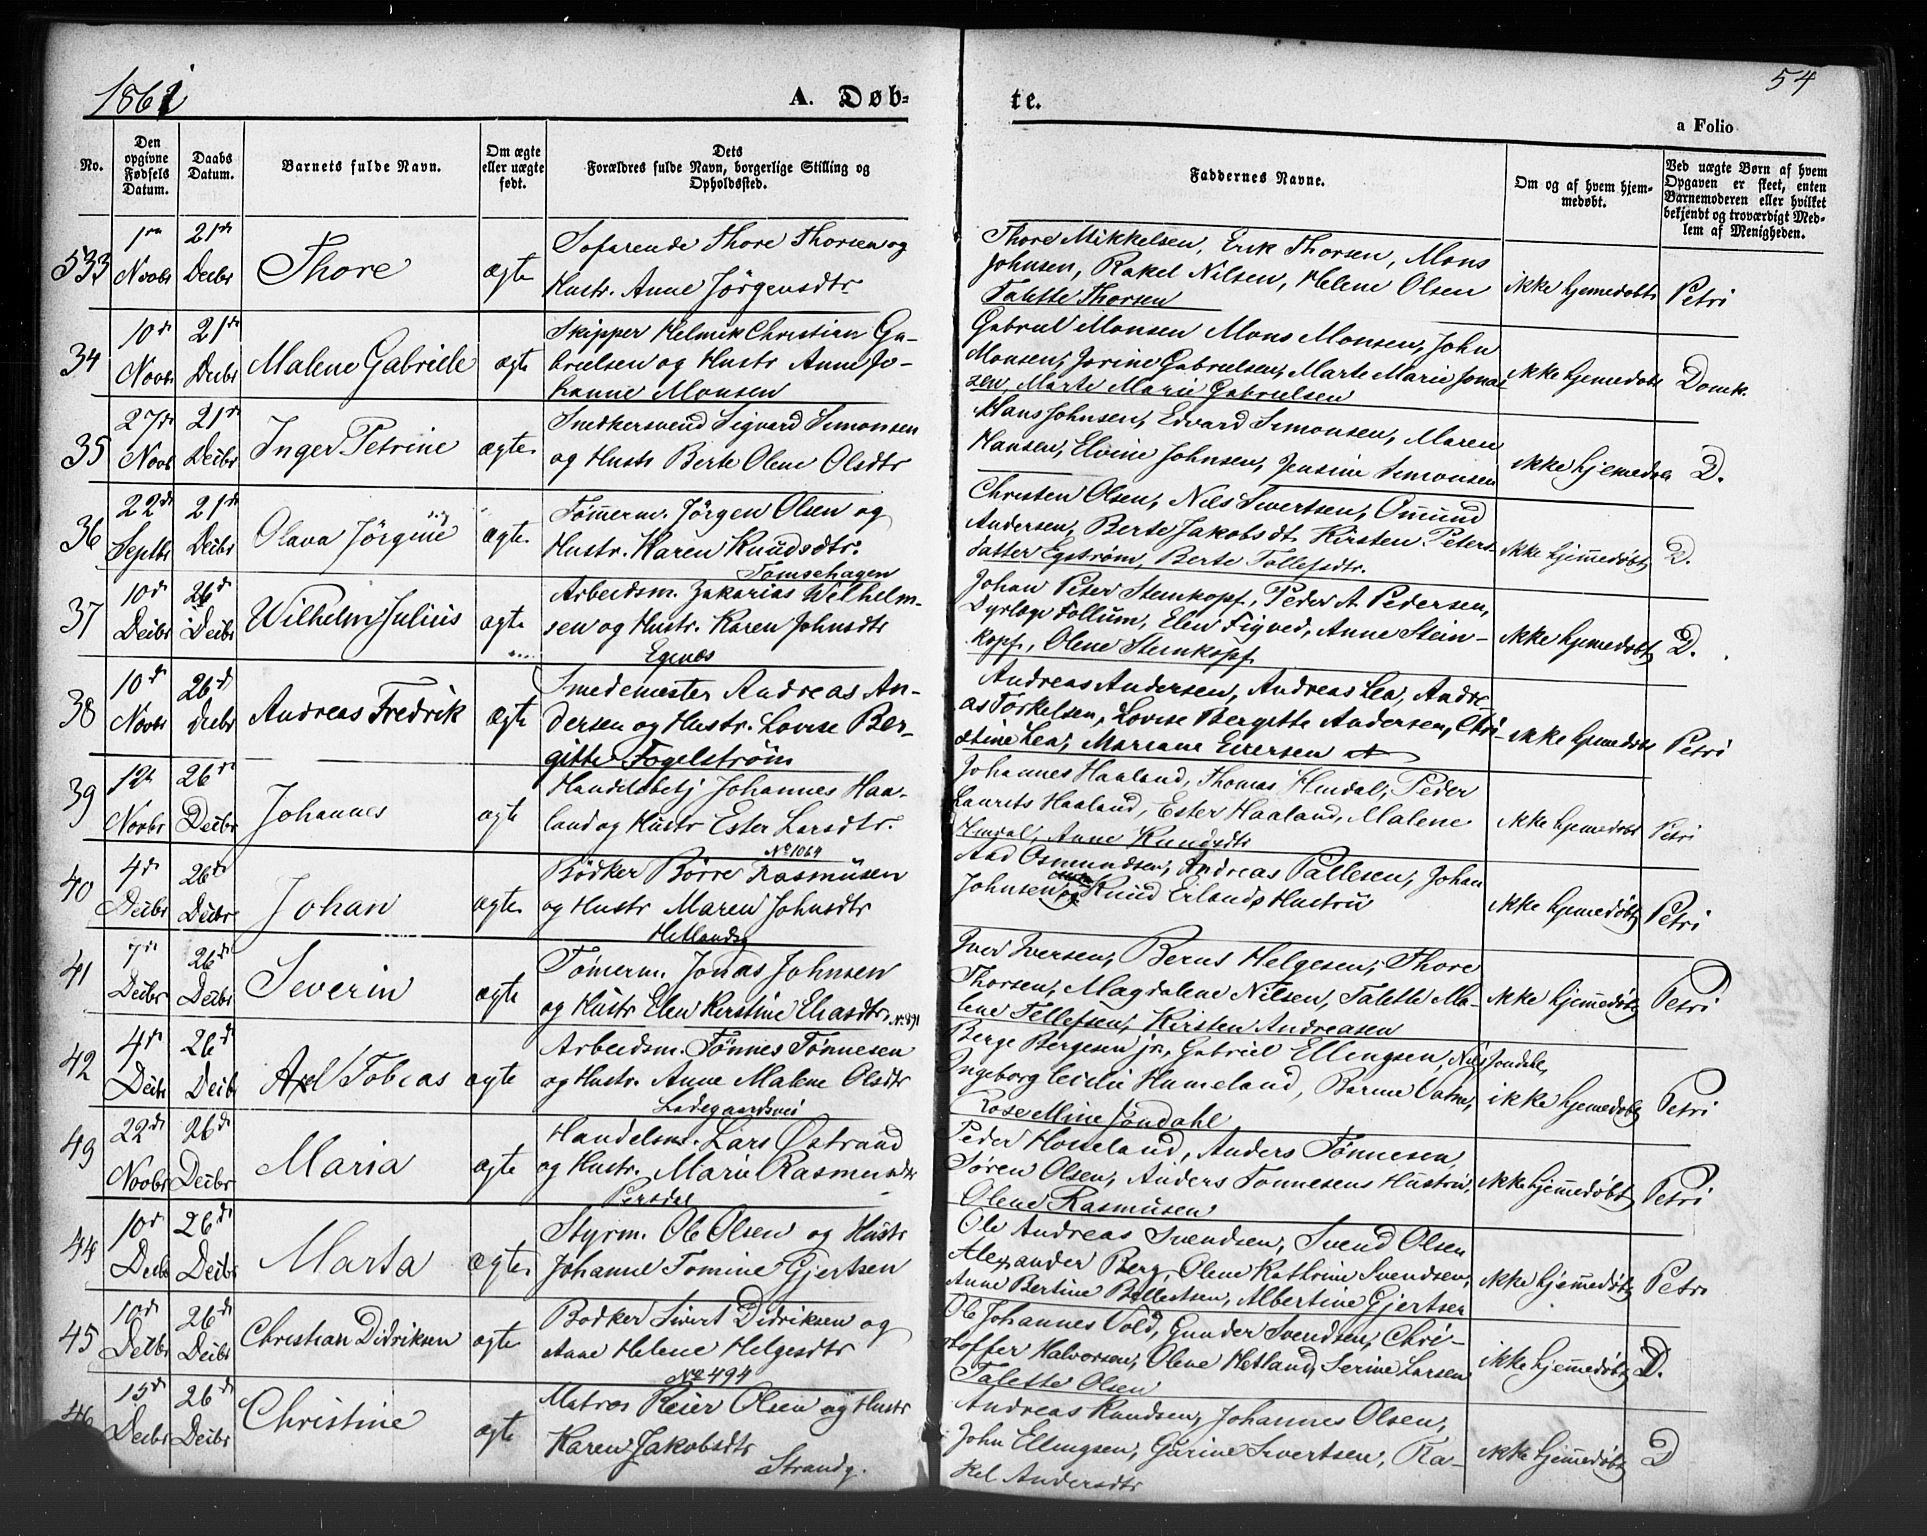 1861
A. Døb-
te.
54
a Folio
No.
Den
opgivne
Fødsels
Datum.
Daabs
Datum.
Barnets fulde Navn.
Om ægte
eller uægte
født.
Dets
Forældres fulde Navn, borgerlige Stilling og
Opholdssted.
Faddernes Navne.
Om og af hvem hjem-
medøbt.
Ved uægte Børn af hvem
Opgaven er skeet, enten
Barnemoderen eller hvilket
bekjendt og troværdigt Med-
lem af Menigheden.
533
Novbr
21de
Decbr
Thore
ægte
Søfarende Thore Thorsen og
Hustr. Anne Jörgensdtr.
Thore Mikkelsen, Erik Thorsen, Mons
Johnsen, Rakel Nilsen, Helene Olsen
Talette Thorsen
ikke hjemedøbt
Petri
34
10de
Novbr
21de
Decbr
Malene Gabriele
ægte
Skipper Helmik Christian Ga-
brielsen og Hustr Anne Jo-
hanne Monsen
Gabriel Monsen Mons Monsen, John
Monsen, Jorine Gabrielsen, Marte Marie Jonas
sen, Marte Marie Gabrielsen
ikke hjemedøbt
Domk.
35
27de
Novbr
21de
Decbr
Inger Petrine
ægte
Snedkersvend Sigvard Simonsen
og Hustr Berte Olene Olsdtr
Hans Johnsen, Edvard Simonsen, Maren
Hansen, Elvine Johnsen, Jensine Simonsen
ikke hjemedøb
D.
36
22de
Septbr
21de
Decbr
Olava Jörgine
ægte
Tömerm. Jörgen Olsen og
Hustr. Karen Knudsdtr.
Tomsehagen
Christen Olsen, Nils Sivertsen, Omund
Andersen, Berte Jakobsdt. Kirsten Peters-
datter Egström, Berte Tollefsdtr.
ikke hjemedøbt
D.
37
10de
Decbr
26de
Decbr
Wilhelm Julius
ægte
Arbeidsm. Zakarias Wilhelm-
sen og Hustr. Karen Johnsdtr
Egenæs
Johan Peter Steinkopf, Peder A. Pedersen,
Dyrlæge Follum, Elen Figved, Anne Stein-
kopf, Olene Steinkopf
ikke hjemedøbt
D.
38
10de
Novbr
26de
Decbr
Andreas Fredrik
ægte
Smedemester Andreas An-
dersen og Hustr. Lovise Ber-
gitte Fogelström
Andreas Andersen, Andreas Lea, Andre-
as Torkelsen, Lovise Bergitte Andersen, Chri-
stine Lea, Mariane Eiersen
ikke hjemedøbt
Petri
39
12te
Novbr
26de
Decbr
Johannes
ægte
Handelsbetj Johannes Haa-
land og Hustr Ester Larsdtr.
No 1064
Johannes Haaland, Thomas Hindal, Peder
Laurets Haaland, Ester Haaland, Malene
Hindal, Anne Knudsdtr
ikke hjemedøbt
Petri
40
4de
Decbr
26de
Decbr
Johan
ægte
Bödker Börre Rasmusen
og Hustr Maren Johnsdtr
Hetlandsg
Aad Osmundsen, Andreas Pallesen, Johan
Johnsen og Knud Erlands Hustru
ikke hjemedøbt
Petri
41
7de
Decbr
26de
Decbr
Severin
ægte
Tömerm. Jonas Johnsen
og Hustr Elen Kerstine Eliasdtr.
Iver Iversen, Bernt Helgesen, Thore
Thorsen, Magdalene Nilsen, Talette Ma-
lene Tellefsen, Kirsten Andreasen
ikke hjemedøbt
Petri
42
4de
Decbr
26de
Decbr
Axel Tobias
ægte
Arbeidsm. Tönnes Tönnesen
og Hustr. Anne Malene Olsdtr
Ladegaardsvei
Berge Bergesen jr, Gabriel Ellingsen, Nils Jondahl,
Ingeborg Cecilie Humeland, Barine Vatne,
Rose Mine Jondahl
ikke hjemedøbt
Petri
43
22de
Novbr
26de
Decbr
Maria
ægte
Handelsm. Lars Östrand
og Hustr. Marie Rasmusdtr
Persdal
Peder Hosseland, Anders Tönnesen,
Sören Olsen, Anders Tonnesens Hustru,
Olene Rasmusen
ikke hjemedøbt
Petri
44
10de
Decb
26de
Decbr
Marta
ægte
Styrm. Ole Olsen og Hustr
Johanne Tomine Gjertsen
Ole Andreas Svendsen, Svend Olsen
Alexander Berg, Olene Kathrine Svendsen,
Anne Bertine Bellestsen, Albertine Gjertsen
ikke hjemedøbt
Petri
45
10de
Decbr
26de
Decbr
Christian Didriksen
ægte
Bödker Sivert Didriksen og
Anne Helene Helgesdtr
No 494
Ole Johannes Vold, Gunder Svendsen, Chri-
stoffer Halvorsen, Olene Hetland, Serine Larsen
Talette Olsen
ikke hjemedøbt
D.
46
15de
Decbr
26de
Decbr
Christine
ægte
Matros Reier Olsen og Hustr
Karen Jakobsdtr
Strandg.
Andreas Knudsen, Johannes Olsen,
John Ellingsen, Gurine Sivertsen, Ra-
kel Andersdtr
ikke hjemedøbt
D